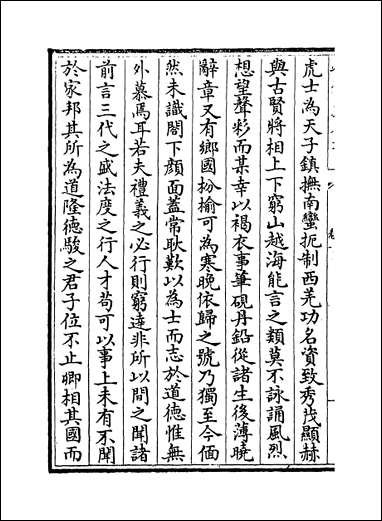 虎士為天子鎮撫南蠻扼制西羌功名資致秀茂顯赫
與古賢將相上下窮山越海能言之類莫不詠誦風烈
想望聲彩而某幸以褐衣事筆硯丹鉛從諸生後薄曉
辭章又有鄉國枌榆可為寒晚依歸之號乃獨至今偭
然未識閤下顏面蓋常耿歎以為士而志於道德惟無
外慕焉耳若夫禮義之必行則窮達非所以間之聞諸
前言三代之盛法度之行人才苟可以事上未有不聞
於家邦其所為道隆德駿之君子位不止卿相其國而